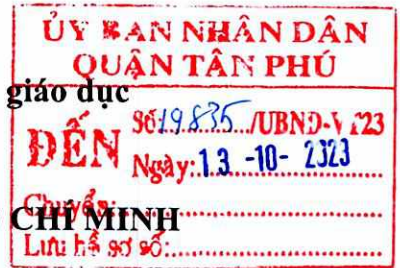 ỦY BAN NHÂN DÂN
QUẬN TÂN PHÚ
giáo dục
ĐẾN
Số: 19835 /UBND-V 23
Ngày: 13 -10- 2323
Chuyển:
CHÍ MINH
Lưu hồ sơ số: